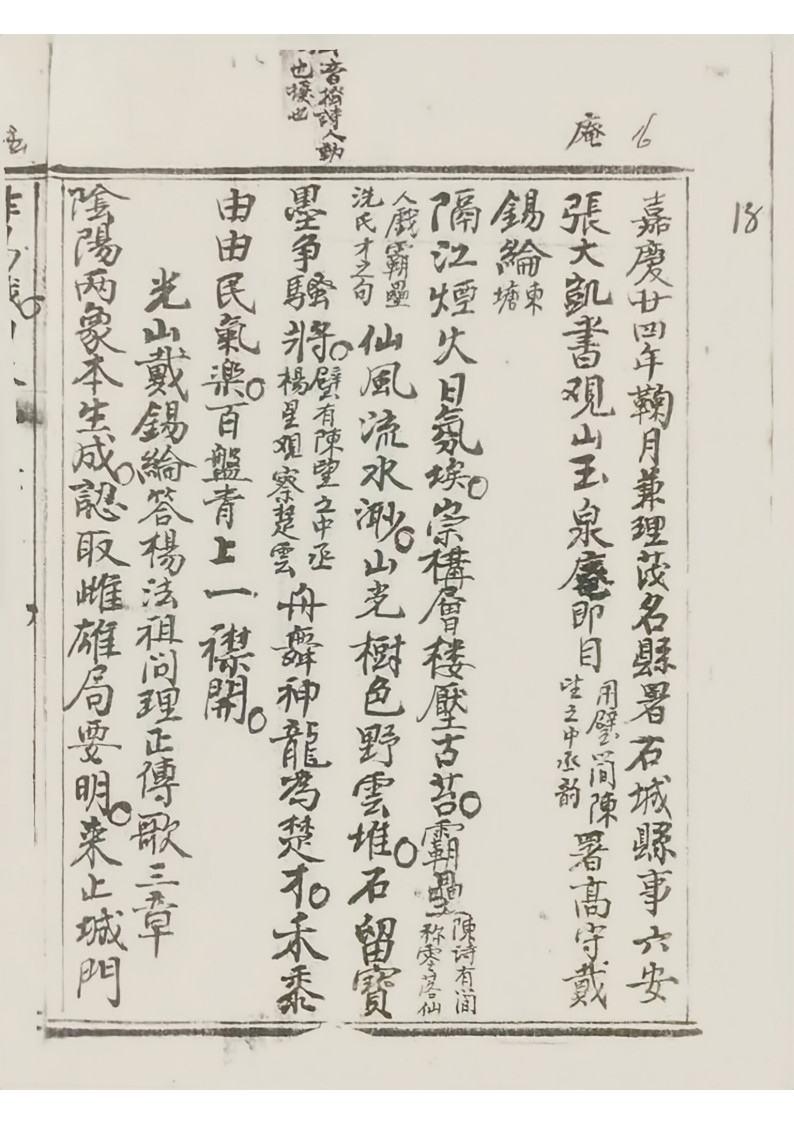 18
庵
音撡詩人動
也擾也
嘉慶廿四年鞠月兼理茂名縣署石城縣事六安
張大凱書观山玉泉庵即目用壁間陳𦤎之中丞韵署高守戴
錫綸東塘
隔江煙火日氛埃崇構層楼壓古苔霸壘陳诗有間称零落仙
人戲霸壘冼氏才之句仙風流水渺山光樹色野雲堆石留寶
墨争騷將壁有陳望之中丞楊星观察楚雲舟舞神龍為楚才禾黍
由由民氣楽百盤青上一襟開
光山戴錫綸答楊法祖问理正傳歌三章
陰陽两象本生成認取雌雄局要明来止城門